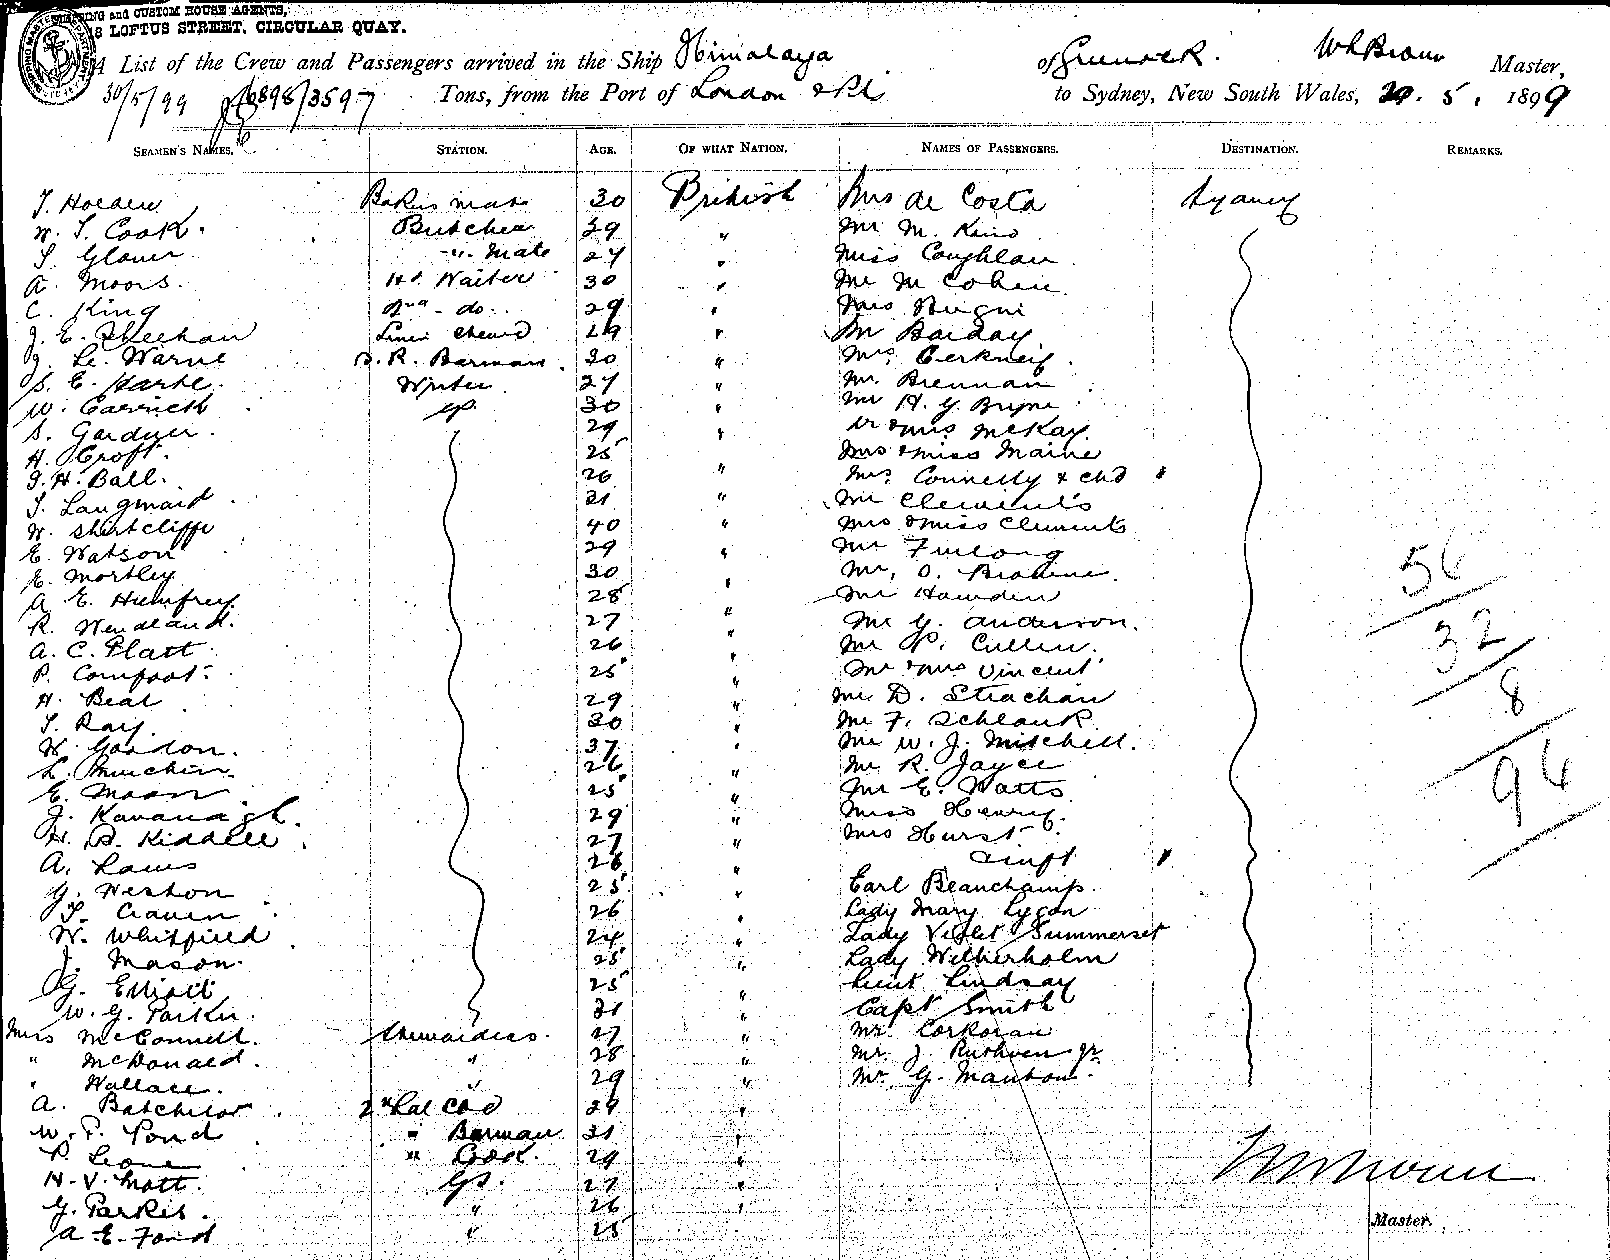 SHIPPING and CUSTOM HOUSE AGENTS,
8 LOFTUS STREET, CIRCULAR QUAY.
A List of the Crew and Passengers arrived in the Ship Himalaya of Greenock. Master,
30/5/99 6898/3597 Tons, from the Port of London to Sydney, New South Wales, 5. 1899
SEAMEN'S NAMES. STATION. AGE. OF WHAT NATION. NAMES OF PASSENGERS. DESTINATION. REMARKS.
T. Holden Bakers mate 30 British Mrs de Costa Sydney
W. T. Cook. Butcher 29 " Mr M. King
T. Glover " mate 27 " Miss Coughlan
A. Moors. Hd. Waiter 30 " Mr M Cohen
C. King 2nd do. 29 " Mrs
J. E. Sheehan Linen 29 " Mr Barday.
J. Le. Warne S. R. Barman. 30 " Mrs
S. E. Harte. Writer 27 " Mr. Brennan
W. Carrick G.S. 30 " Mr H. G. Bryne
S. Gardner. 29 " Mr & Mrs McKay.
H. Croft. 25 Mrs & Miss Maine
G. H. Ball. 26 " Mrs. Connelly & chd
T. Langmaid 31 " Mr Clements
W. Shertcliffe 40 " Mrs & Miss Clements
E. Watson 29 " Mr Furlong
E. Mortley 30 " Mr. O. Browne.
A. E. Humfrey. 28 " Mr Hawden 56
R. Wendland. 27 " Mr G. Anderson. 32
A. C. Platt 26 " Mr P. Cullen.
P. Comfoot. 25 " Mr & Mrs Vincent
H. Beal 29 " Mr. D. Strachan 8
T. Ray. 30 " Mr F. Schlank
W. Gordon. 37 " Mr W. J. Mitchell.
L. Minchin. 26 " Mr R. Jayce 96
E. Moon. 25 " Mr E. Watts
J. Kavanagh. 29 " Miss Henry.
H. B. Kiddell. 27 " Mrs Hurst
A. Laws 26 "
G. Weston 25 " Earl Beauchamp.
T. Craven 26 " Lady Mary Lygon
W. Whitfield 24 " Lady Violet Summerset
J. Mason. 25 " Lady Wetherholm
G. Elliott 25 " Lieut Lindsay
W. G. Parker. 31 " Capt Smith
Mrs McConnell. Stewardess. 27 " Mr. Corkoran
" McDonald. " 28 " Mr. J. Ruthven Jr.
" Wallace. " 29 " Mr G. Manton.
A. Batchelor. 29 "
W. P. Pond " Barman 31 "
P. Leone " Cook. 29 "
H. V. Mott. G.S. 27 "
G. Parker. " 26 "
A. E. Ford " 25
Master.